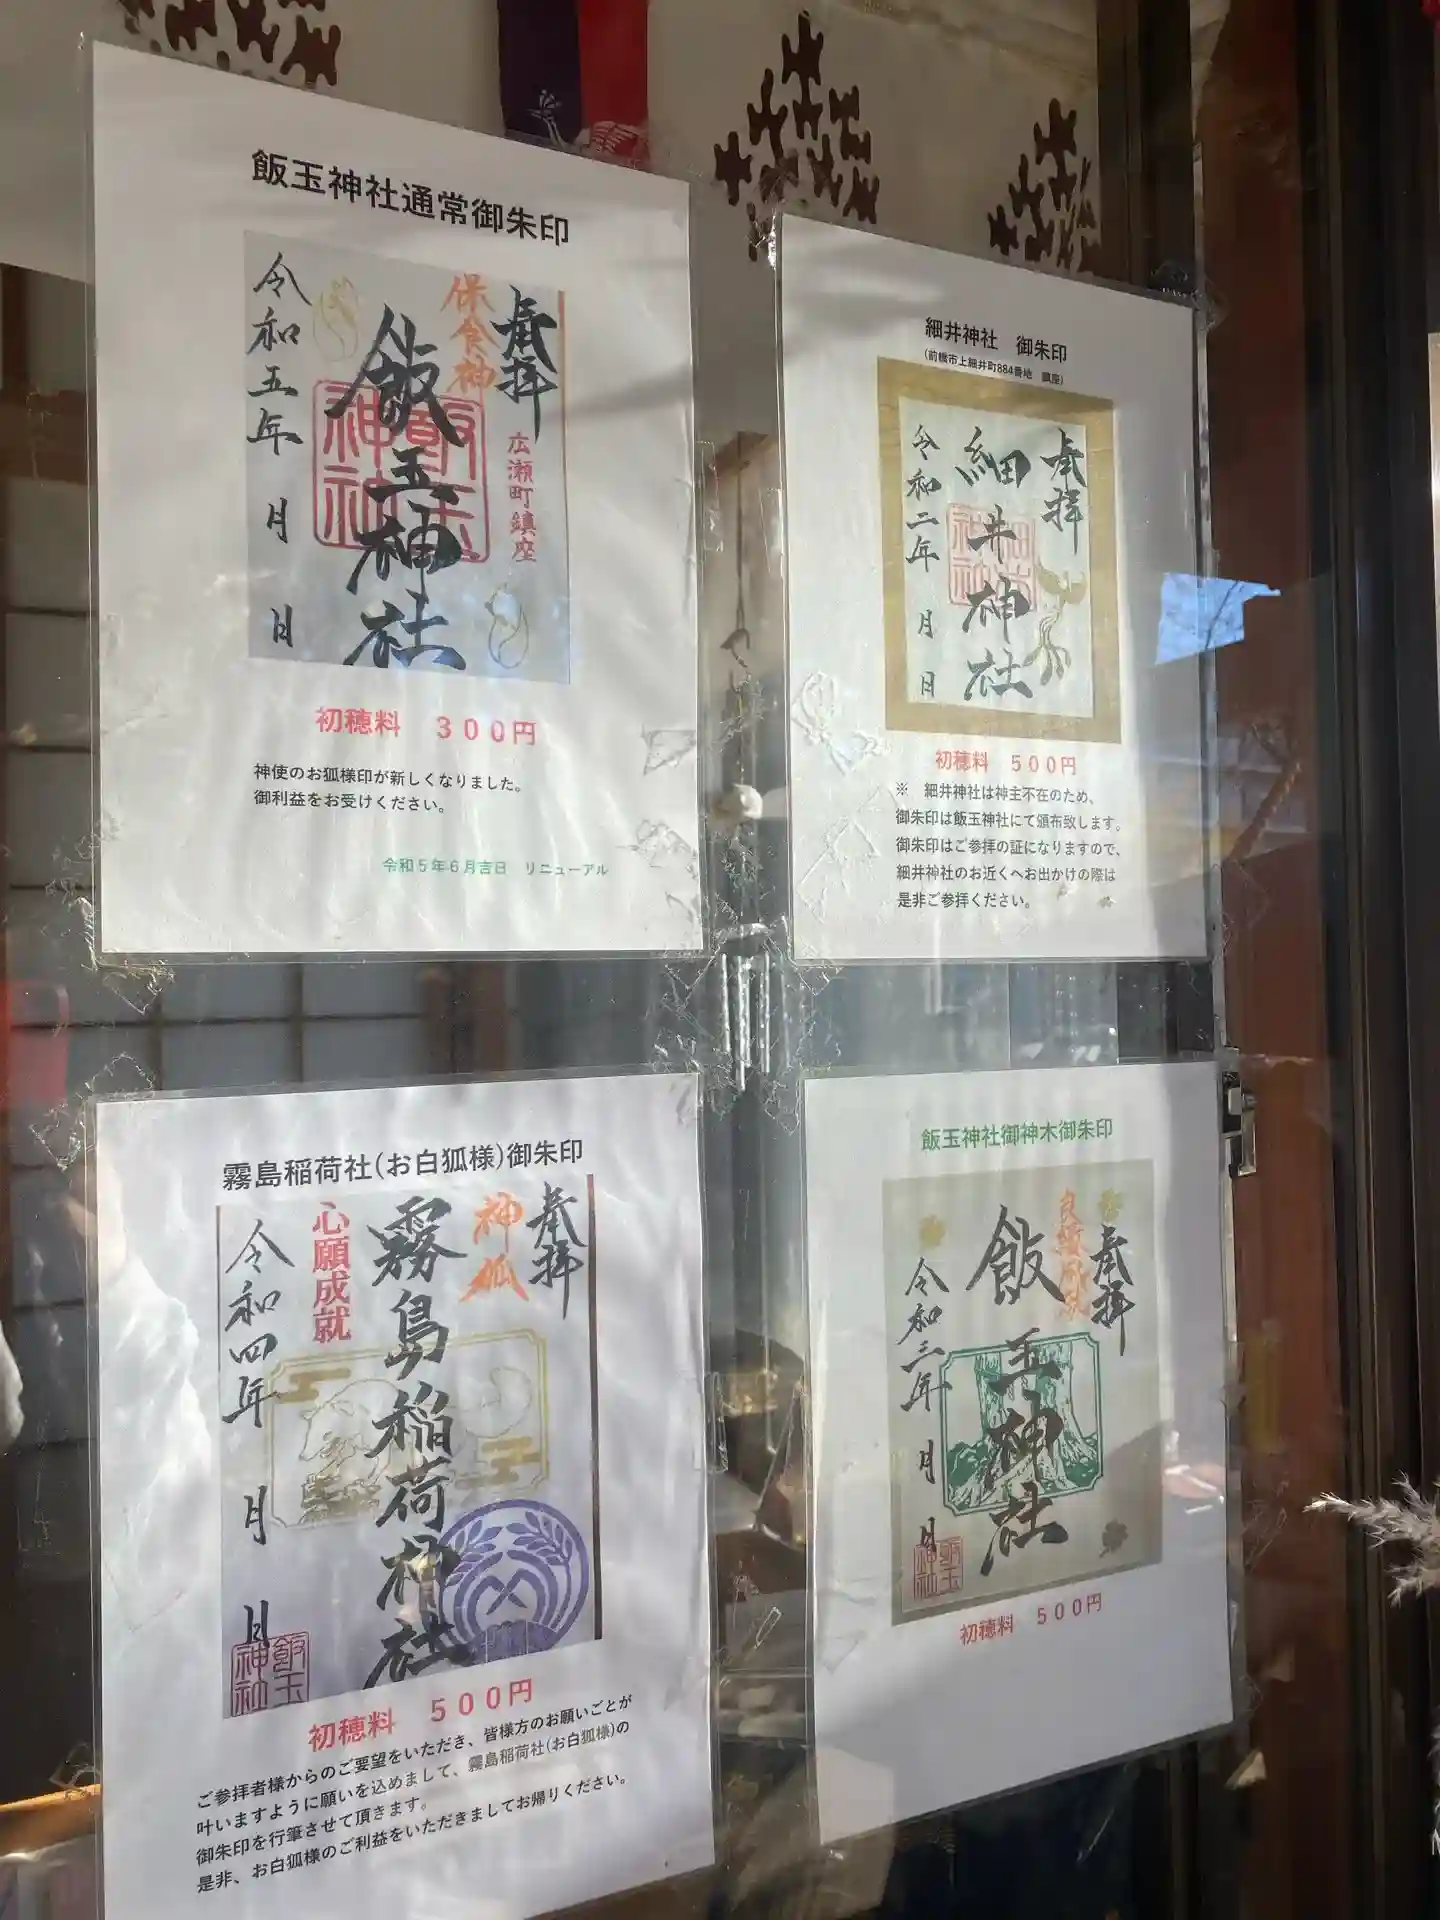 飯玉神社通常御朱印
奉拝
保食神
広瀬町鎮座
飯玉神社
令和五年 月 日
初穂料 300円
神使のお狐様印が新しくなりました。
御利益をお受けください。
令和5年6月吉日 リニューアル
細井神社 御朱印
(前橋市上細井町884番地 鎮座)
奉拝
細井神社
令和二年 月 日
初穂料 500円
※ 細井神社は神主不在のため、
御朱印は飯玉神社にて頒布致します。
御朱印はご参拝の証になりますので、
細井神社のお近くへお出かけの際は
是非ご参拝ください。
霧島稲荷社(お白狐様)御朱印
奉拝
神狐
霧島稲荷神社
心願成就
令和四年 月 日
飯玉神社
初穂料 500円
ご参拝者様からのご要望をいただき、皆様方のお願いごとが
叶いますように願いを込めまして、霧島稲荷社(お白狐様)の
御朱印を行筆させて頂きます。
是非、お白狐様のご利益をいただきましてお帰りください。
飯玉神社御神木御朱印
奉拝
良縁成就
飯玉神社
令和三年 月 日
飯玉神社
初穂料 500円